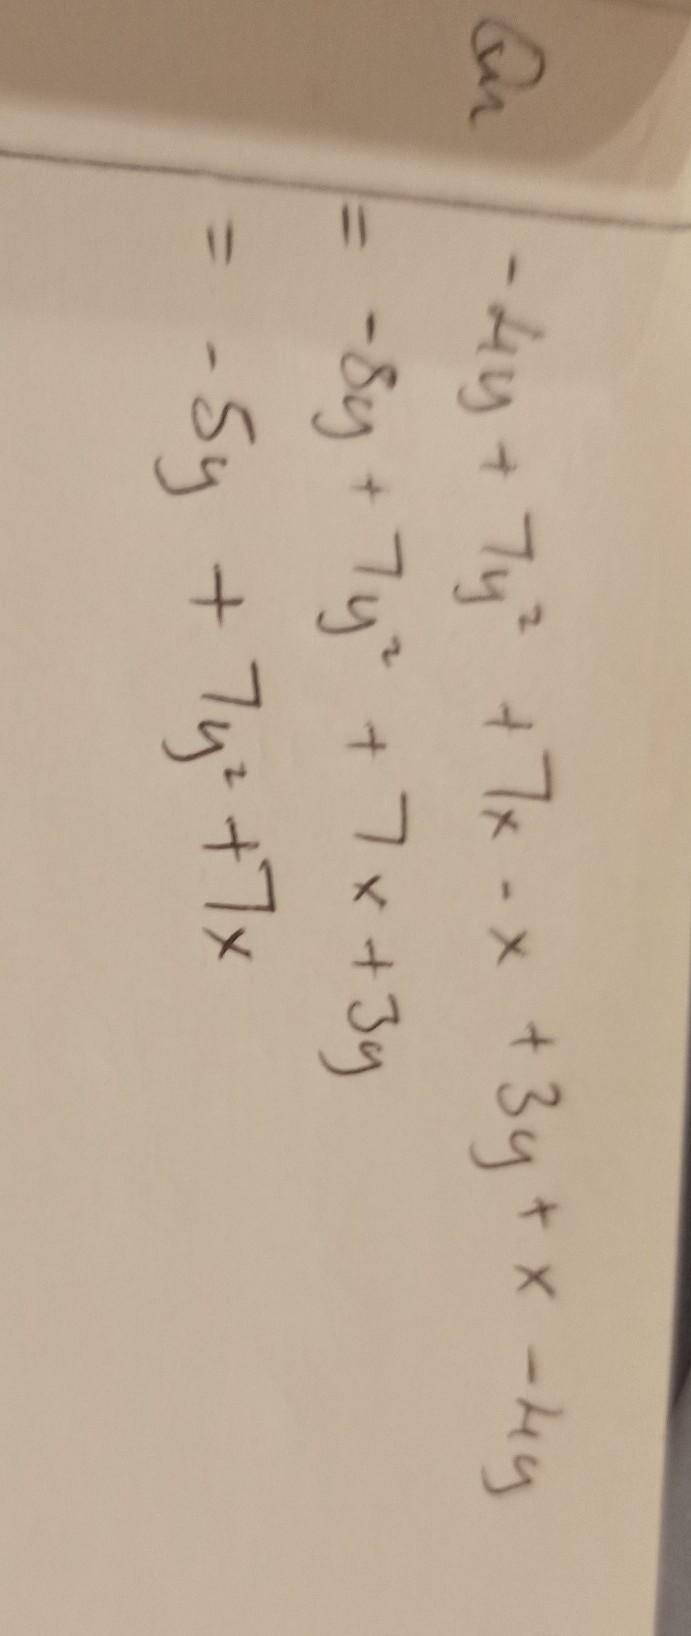 Qn -4y + 7y² + 7x - x + 3y + x - 4y
= -8y + 7y² + 7x + 3y
= -5y + 7y² + 7x